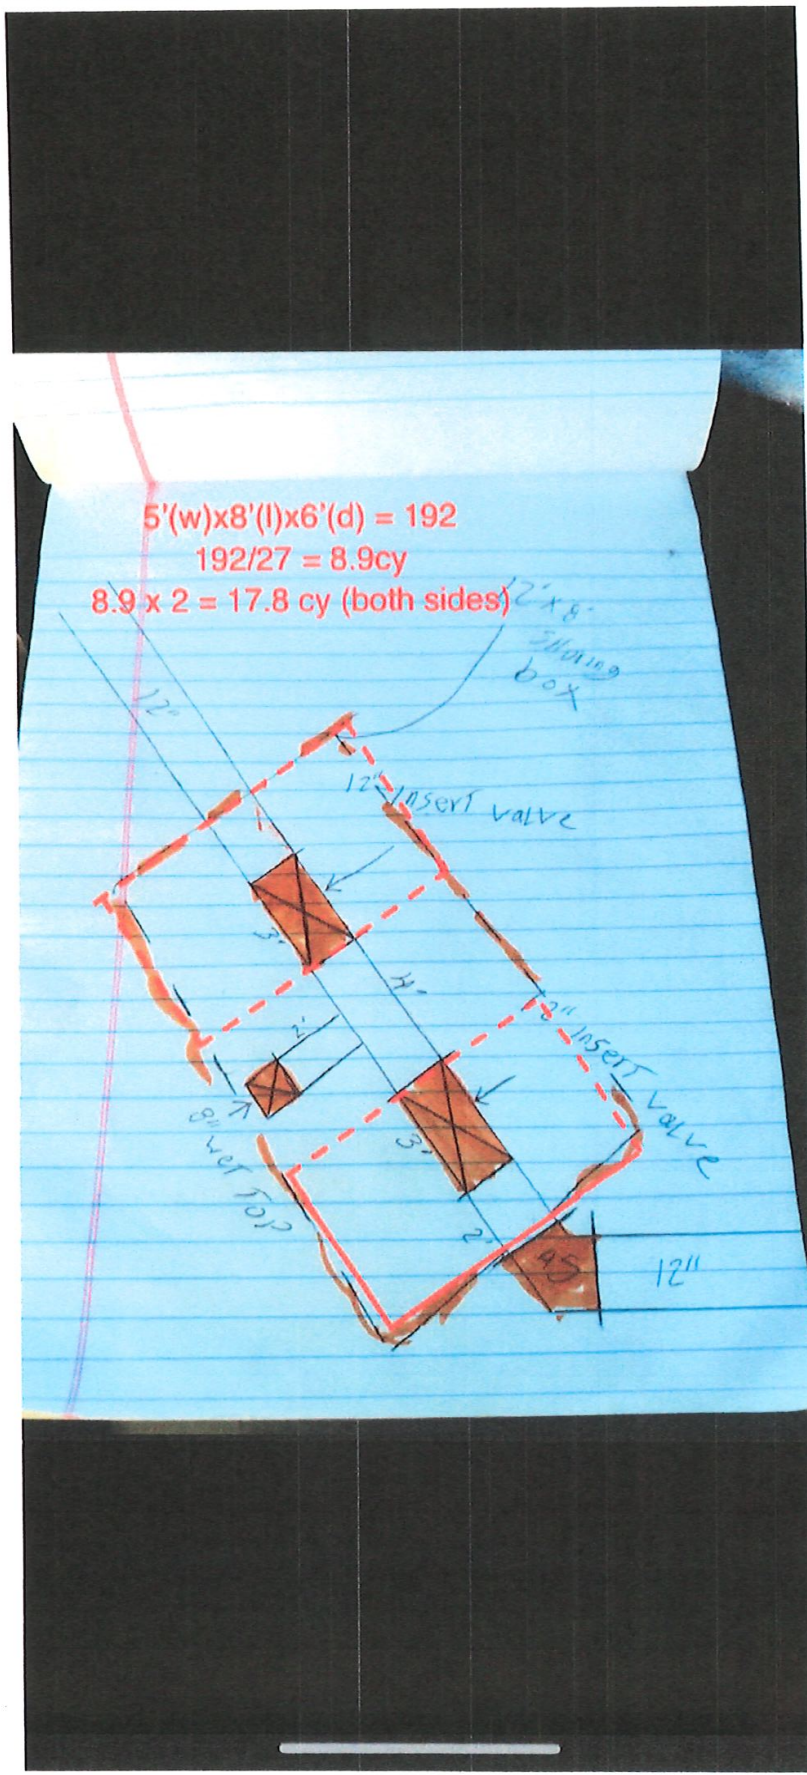 5'(w)x8'(l)x6'(d) = 192
192/27 = 8.9cy
8.9 x 2 = 17.8 cy (both sides)
12' x 8'
Shoring
box
12"
12" Insert valve
3'
4'
2'
12" Insert valve
8" wet TAP
3'
2'
45
12"